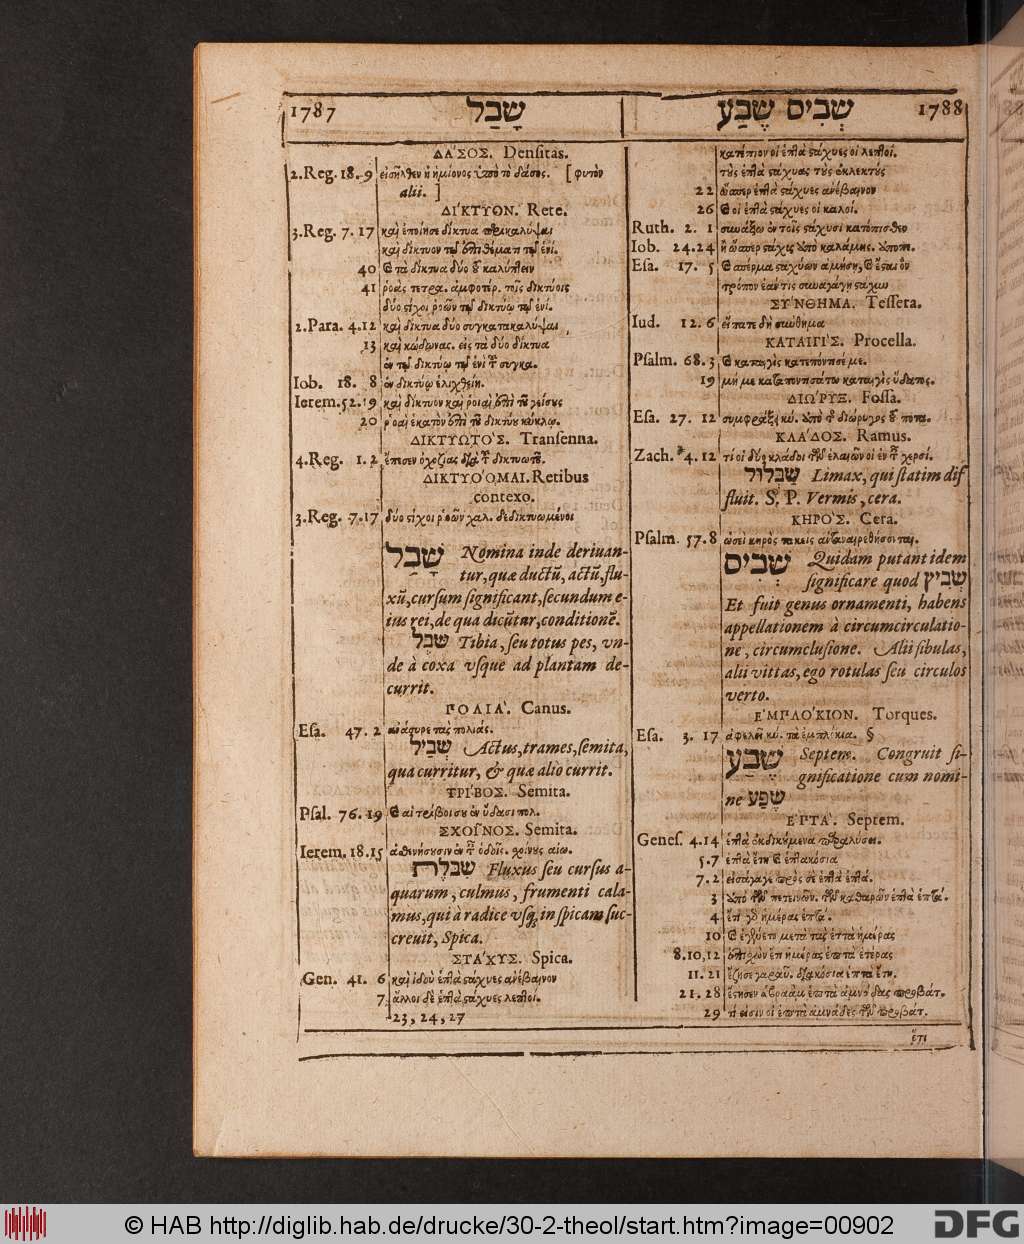 1787 שָׁבַל
שְׁבִים שֶׁבַע 1788
ΔΑ´ΣΟΣ. Densitas.
2.Reg. 18. 9 εἰσῆλθεν ἡ ἡμίονος ὑπὸ τὸ δάσος. [φυτὸν
alii. ]
ΔΙ´ΚΤΥΟΝ. Rete.
3.Reg. 7. 17 καὶ ἐποίησε δίκτυα περικαλύψαι
καὶ δίκτυον τῷ ἐπιθέματι τῷ ἑνί.
40 καὶ τὰ δίκτυα δύο τοῦ καλύπτειν
41 ῥοὰς τετρα. ἀμφοτέρ. τοῖς δικτύοις
δύο στίχοι ῥοῶν τῷ δικτύῳ τῷ ἑνί.
2.Para. 4.12 καὶ δίκτυα δύο συγκατακαλύψαι
13 καὶ κώδωνας. εἰς τὰ δύο δίκτυα
ἐν τῷ δικτύῳ τῷ ἑνὶ τοῦ συγκα.
Iob. 18. 8 ἐν δικτύῳ ἑλιχθείη.
Ierem. 52. 19 καὶ δίκτυον καὶ ῥοιαὶ ἐπὶ τοῦ γείσους
20 ῥοαὶ ἑκατὸν ἐπὶ τοῦ δικτύου κύκλῳ.
ΔΙΚΤΥΩΤΟ´Σ. Transenna.
4.Reg. 1. 2 ἔπεσεν ὀχοζίας διὰ τοῦ δικτυωτοῦ.
ΔΙΚΤΥΟ´ΟΜΑΙ. Retibus
contexo.
3.Reg. 7.17 δύο στίχοι ῥοῶν χαλ. δεδικτυωμένοι
שָׁבַל Nomina inde deriuan-
tur, quæ ductū, actū, flu-
xū, cursum significant, secundum e-
ius rei, de qua dicūtur, conditionē.
שֹׁבֶל Tibia, seu totus pes, vn-
de à coxa vsque ad plantam de-
currit.
ΠΟΛΙΑ´. Canus.
Esa. 47. 2 ἀνάσυρε τὰς πολιάς.
שְׁבִיל Actus, trames, semita,
qua curritur, & quæ alio currit.
ΤΡΙ´ΒΟΣ. Semita.
Psal. 76. 19 καὶ αἱ τρίβοι σου ἐν ὕδασι πολ.
ΣΧΟΙ͂ΝΟΣ. Semita.
Ierem. 18.15 ἀσθενήσουσιν ἐν τ. ὁδοῖς. σχοίνους αἰω.
שִׁבֹּלֶת Fluxus seu cursus a-
quarum, culmus, frumenti cala-
mus, qui à radice vsq; in spicam suc-
creuit, Spica.
ΣΤΑ´ΧΥΣ. Spica.
Gen. 41. 6 καὶ ἰδοὺ ἑπτὰ στάχυες ἀνέβαινον
7 ἄλλοι δὲ ἑπτὰ στάχυες λεπτοί.
23, 24, 27
κατέπιον οἱ ἑπτὰ στάχυες οἱ λεπτοί.
τοὺς ἑπτὰ στάχυας τοὺς ἐκλεκτοὺς
22 ὥσπερ ἑπτὰ στάχυες ἀνέβαινον
26 καὶ οἱ ἑπτὰ στάχυες οἱ καλοί.
Ruth. 2. 1 συνάξω ἐν τοῖς στάχυσι κατόπισθεν
Iob. 24.24 ἢ ὥσπερ στάχυς ἀπὸ καλάμης. ἀποπε.
Esa. 17. 5 καὶ σπέρμα σταχύων ἀμήσῃ, καὶ ἔσται ὃν
τρόπον ἐάν τις συναγάγῃ στάχυν
ΣΥ´ΝΘΗΜΑ. Tessera.
Iud. 12. 6 εἴπατε δὴ σύνθημα
ΚΑΤΑΙΓΙ´Σ. Procella.
Psalm. 68. 3 καὶ καταιγὶς κατεπόντισέ με.
19 μή με καταποντισάτω καταιγὶς ὕδατος.
ΔΙΩ͂ΡΥΞ. Fossa.
Esa. 27. 12 συμφράξει κύ. ἀπὸ τῆς διώρυχος τοῦ ποτα.
ΚΛΑ´ΔΟΣ. Ramus.
Zach. 4. 12 τί οἱ δύο κλάδοι τῶν ἐλαιῶν οἱ ἐν τ. χερσί.
שַׁבְּלוּל Limax, qui statim dif
fluit. S. P. Vermis, cera.
ΚΗΡΟ´Σ. Cera.
Psalm. 57. 8 ὡσεὶ κηρὸς τακεὶς ἀνταναιρεθήσονται.
שְׁבִים Quidam putant idem
significare quod שְׁבִיץ
Et fuit genus ornamenti, habens
appellationem à circumcirculatio-
ne, circumclusione. Alii fibulas,
alii vittas, ego rotulas seu circulos
verto.
ΕʹΜΠΛΟ´ΚΙΟΝ. Torques.
Esa. 3. 17 ἀφελεῖ κύ. τὰ ἐμπλόκια. §
שֶׁבַע Septem. Congruit si-
gnificatione cum nomi-
ne שֶׁפַע
ΕʹΠΤΑ´. Septem.
Genes. 4.14 ἑπτὰ ἐκδικούμενα παραλύσει.
5.7 ἑπτὰ ἔτη καὶ ἑπτακόσια
7.2 εἰσάγαγε πρὸς σὲ ἑπτὰ ἑπτά.
3 ἀπὸ τῶν πετεινῶν. τῶν καθαρῶν ἑπτὰ ἑπτά.
4 ἔτι γὸ ἡμέρας ἑπτά.
10 καὶ ἐγένετο μετὰ τὰς ἑπτὰ ἡμέρας
8.10,12 ἐπισχὼν ἔτι ἡμέρας ἑπτὰ ἑτέρας
11. 21 ἔζησε ραγαῦ. διακόσια ἑπτὰ ἔτη.
21. 28 ἔστησεν ἀβραὰμ ἑπτὰ ἀμνάδας προβάτ.
29 τί εἰσιν οἱ ἑπτὰ ἀμνάδες τῶν προβάτ.
ἔτι
© HAB http://diglib.hab.de/drucke/30-2-theol/start.htm?image=00902 DFG